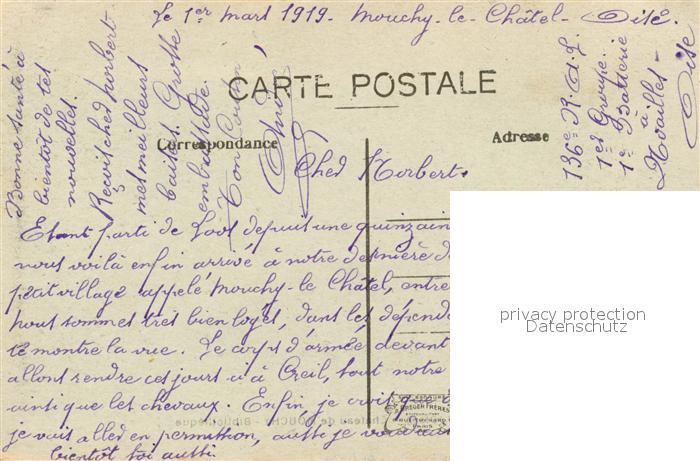 Le 1er mars 1919. Mouchy-le-Châtel-Oise.
CARTE POSTALE
Correspondance
Adresse
136e R.A.L.
1er Groupe.
1e Batterie
à
Noailles-
Oise
Cher Norbert.
Etant parti de Loos depuis une quinzain
nous voilà enfin arrivé à notre dernière de
petit village appelé Mouchy-le Châtel, entre
nous sommes très bien logés, dans les dépenda
te montre la vue. Le corps d'armée devant
allons rendre ces jours ci à Creil, tout notre
ainsi que les chevaux. Enfin, je crois que
je vais aller en permission, aussi je
bientôt toi aussi
Bonne santé à
bientôt de tes
nouvelles.
Reçois cher Norbert
mes meilleurs
baisers. Grosse
embrassade.
Ton Cousin
privacy protection
Datenschutz
BREGER FRERES
PARIS
Château de MOUCHY - Bibliothèque